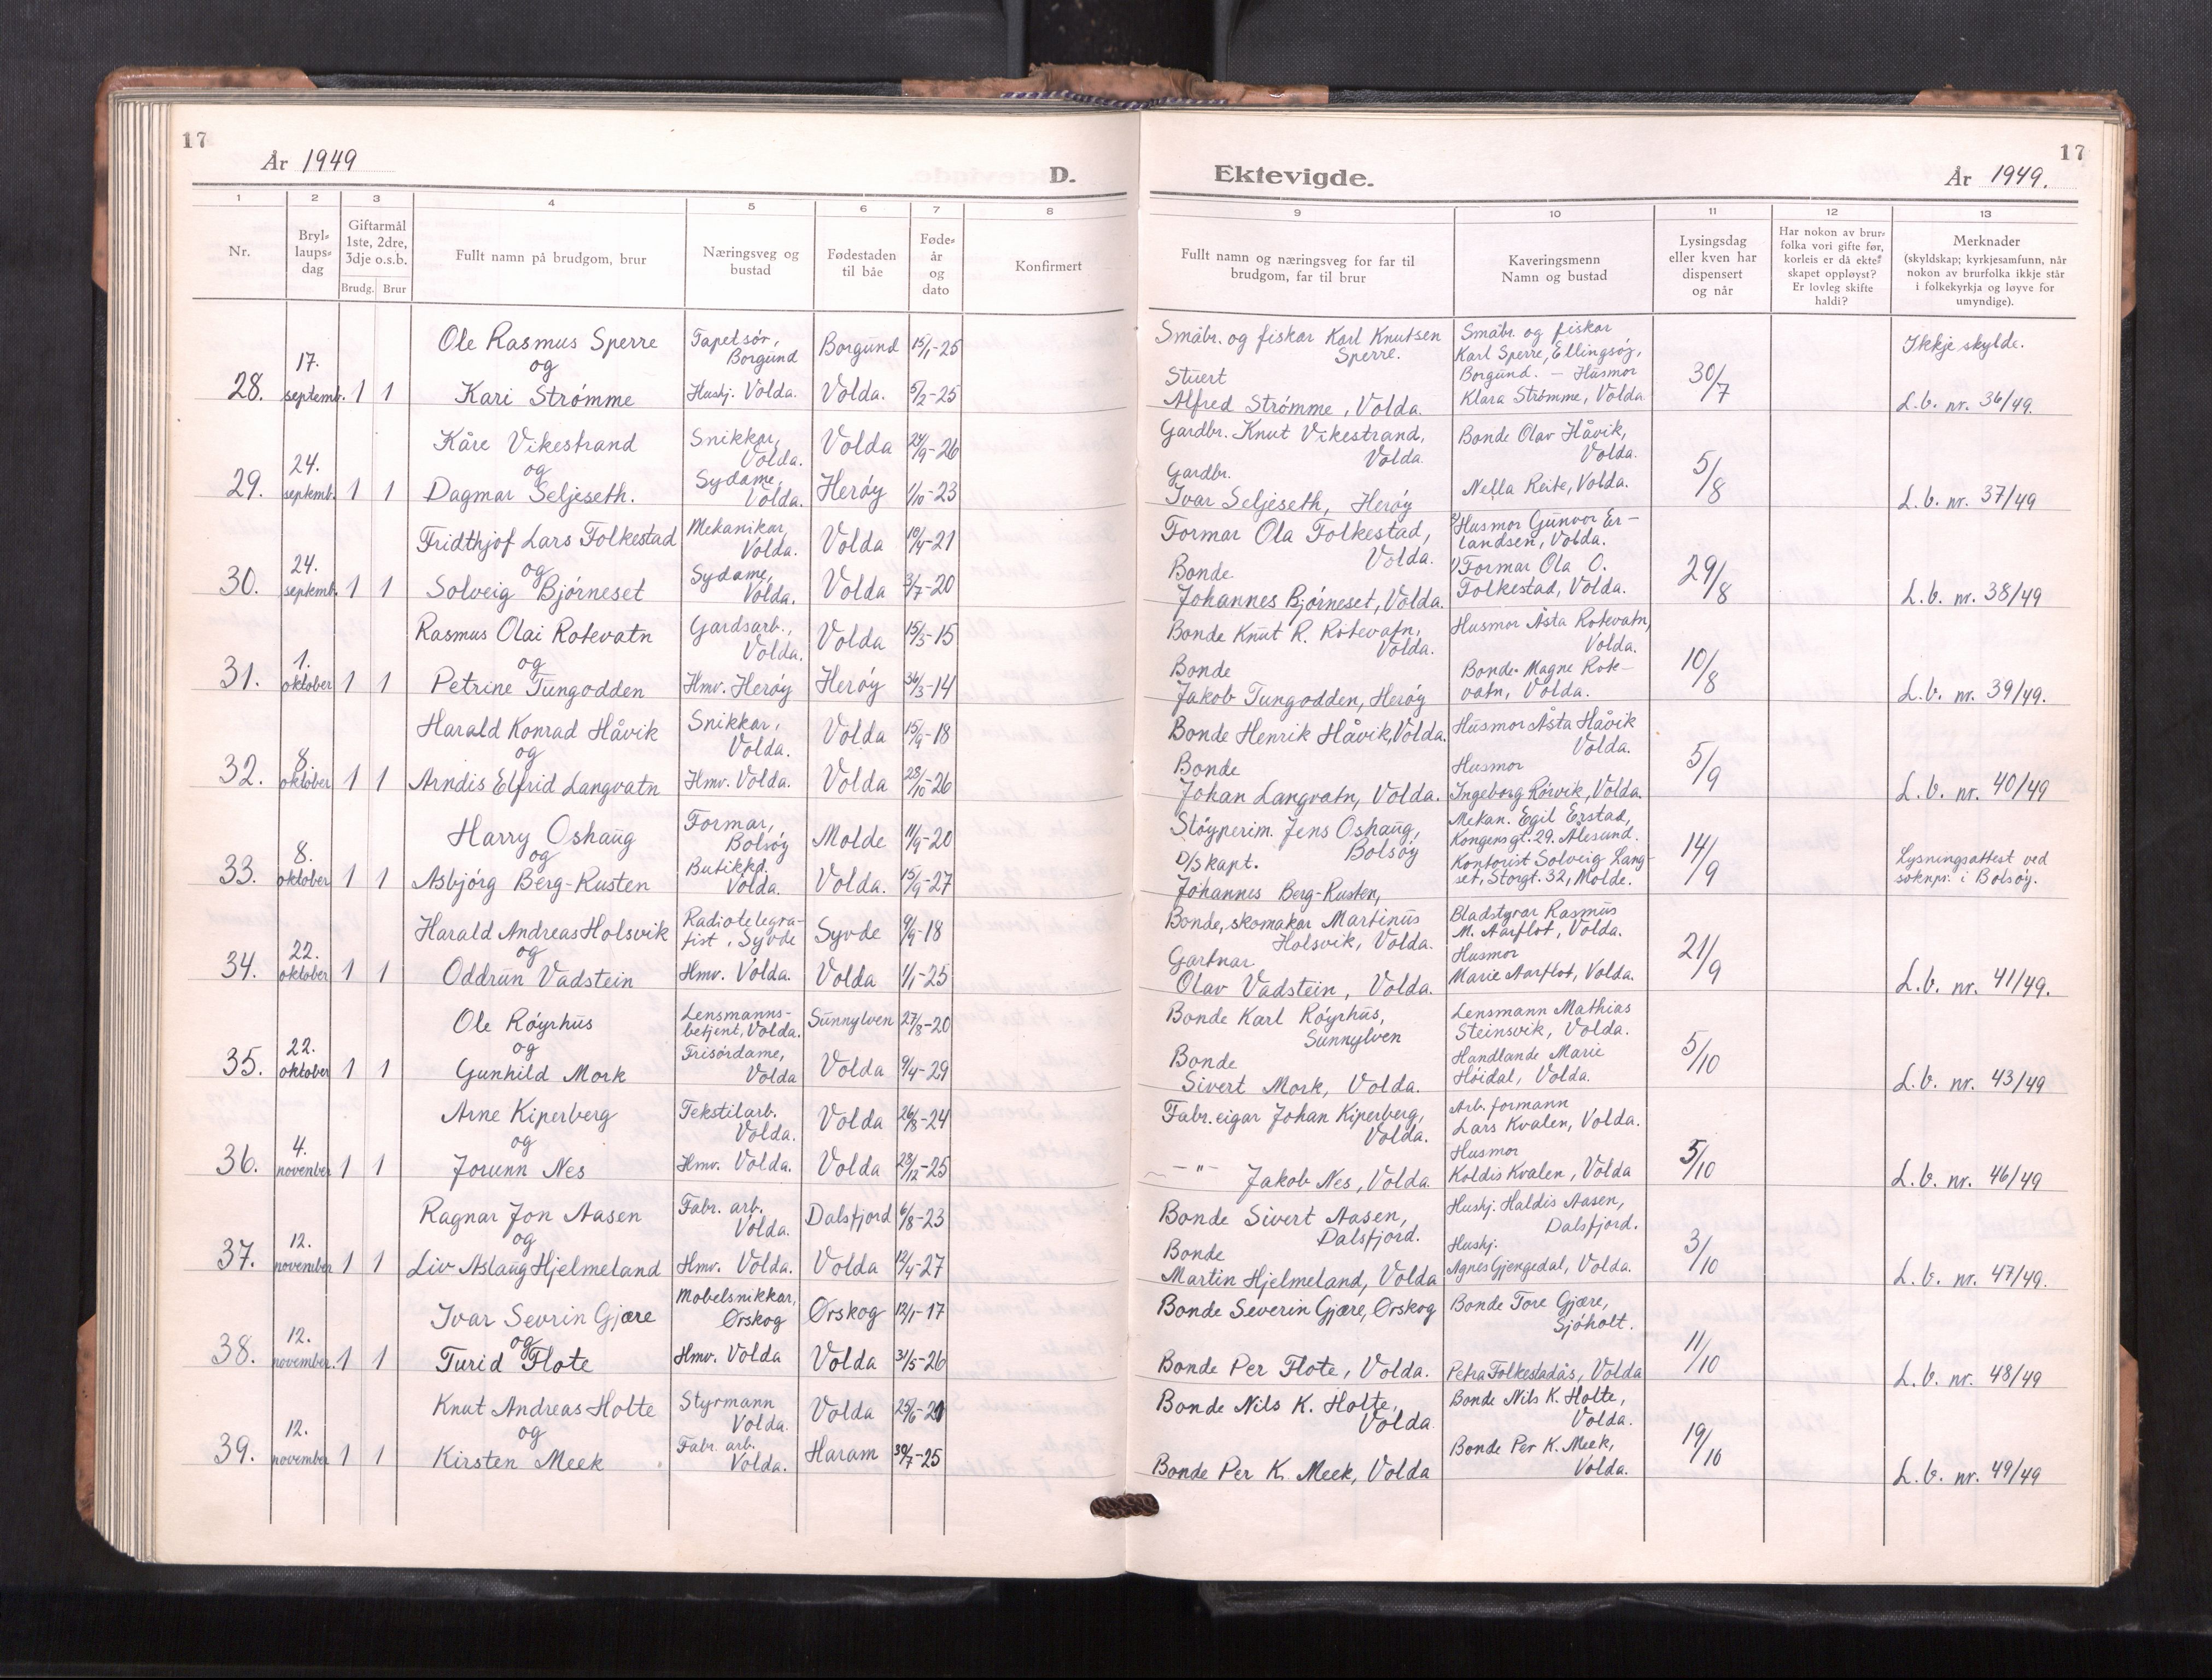 17
År 1949
D.
Ektevigde.
År 1949.
17
1 2 3 4 5 6 7 8 9 10 11 12 13
Nr.
Bryl-
laups-
dag
Giftarmål
1ste, 2dre,
3dje o.s.b.
Brudg. Brur
Fullt namn på brudgom, brur
Næringsveg og
bustad
Fødestaden
til båe
Føde-
år
og
dato
Konfirmert
Fullt namn og næringsveg for far til
brudgom, far til brur
Kaveringsmenn
Namn og bustad
Lysingsdag
eller kven har
dispensert
og når
Har nokon av brur-
folka vori gifte før,
korleis er då ekte-
skapet oppløyst?
Er lovleg skifte
haldi?
Merknader
(skyldskap; kyrkjesamfunn, når
nokon av brurfolka ikkje står
i folkekyrkja og løyve for
umyndige).
28.
17.
septemb. 1 1
Ole Rasmus Sperre
og
Kari Strømme
Tapetsør,
Borgund
Hushj. Volda.
Borgund
Volda.
15/1-25
5/2-25
Småbr. og fiskar Karl Knutsen
Sperre.
Stuert
Alfred Strømme, Volda.
Småbr. og fiskar
Karl Sperre, Ellingsøy,
Borgund. – Husmor
Klara Strømme, Volda
30/7
Ikkje skylde.
L.b. nr. 36/49.
29.
24.
septemb. 1 1
Kåre Vikestrand
og
Dagmar Seljeseth.
Snikkar,
Volda.
Sydame,
Volda.
Volda
Herøy
24/9-26
1/10-23
Gardbr. Knut Vikestrand,
Volda.
Gardbr.
Ivar Seljeseth, Herøy
Bonde Olav Håvik,
Volda.
Nella Reite, Volda.
5/8
L.b. nr. 37/49
30.
24.
septemb. 1 1
Fridthjof Lars Folkestad
og
Solveig Bjørneset
Mekanikar,
Volda.
Sydame,
Volda.
Volda
Volda
19/4-21
3/7-20
Formar Ola Folkestad,
Volda.
Bonde
Johannes Bjørneset, Volda.
2) Husmor Gunvor Er-
landsen, Volda.
1) Formar Ola O.
Folkestad, Volda.
29/8
L.b. nr. 38/49
31.
1.
oktober 1 1
Rasmus Olai Rotevatn
og
Petrine Tungodden
Gardsarb.,
Volda.
Hmv. Herøy
Volda
Herøy
15/5-15
-14
Bonde Knut R. Rotevatn,
Volda.
Bonde
Jakob Tungodden, Herøy
Husmor Åsta Rotevatn,
Volda.
Bonde Magne Rote-
vatn, Volda.
10/8
L.b. nr. 39/49.
32.
8.
oktober 1 1
Harald Konrad Håvik
og
Arndis Elfrid Langvatn
Snikkar,
Volda.
Hmv. Volda.
Volda
Volda
15/9-18
28/10-26
Bonde Henrik Håvik, Volda.
Bonde
Johan Langvatn, Volda.
Husmor Åsta Håvik
Volda.
Husmor
Ingeborg Rørvik, Volda.
5/9
L.b. nr. 40/49
33.
8.
oktober 1 1
Harry Oshaug
og
Asbjørg Berg-Rusten
Formar,
Bolsøy
Butikkd.
Volda.
Molde
Volda.
11/9-20
15/9-27
Støyperim. Jens Oshaug,
Bolsøy
D/S kapt.
Johannes Berg-Rusten,
Mekan. Egil Erstad,
Kongensgt. 29. Ålesund.
Kontorist Solveig Lang-
set, Storgt. 32, Molde.
14/9
Lysningsattest ved
soknpr. i Bolsøy.
34.
22.
oktober 1 1
Harald Andreas Holsvik
og
Oddrun Vadstein
Radiotelegra-
fist, Syvde
Hmv. Volda.
Syvde
Volda
9/9-18
1/1-25
Bonde, skomakar Martinus
Holsvik, Volda.
Gartnar
Olav Vadstein, Volda.
Bladstyrar Rasmus
M. Aarflot, Volda.
Husmor
Marie Aarflot, Volda.
21/9
L.b. nr. 41/49.
35.
22.
oktober 1 1
Ole Røyrhus
og
Gunhild Mork
Lensmanns-
betjent, Volda.
Frisørdame,
Volda
Sunnylven
Volda
27/8-20
9/4-29
Bonde Karl Røyrhus,
Sunnylven
Bonde
Sivert Mork, Volda.
Lensmann Mathias
Steinsvik, Volda.
Handlande Marie
Høidal, Volda.
5/10
L.b. nr. 43/49
36.
4.
november 1 1
Arne Kiperberg
og
Jorunn Nes
Tekstilarb.
Volda.
Hmv. Volda.
Volda
Volda
26/8-24
28/12-25
Fabr. eigar Johan Kiperberg,
Volda.
– " – Jakob Nes, Volda.
Arb. formann
Lars Kvalen, Volda.
Husmor
Koldis Kvalen, Volda
5/10
L.b. nr. 46/49
37.
12.
november 1 1
Ragnar Jon Aasen
og
Liv Aslaug Hjelmeland
Fabr. arb.
Volda.
Hmv. Volda.
Dalsfjord
Volda
6/8-23
12/4-27
Bonde Sivert Aasen,
Dalsfjord.
Bonde
Martin Hjelmeland, Volda
Hushj. Haldis Aasen,
Dalsfjord.
Hushj.
Agnes Gjengedal, Volda.
3/10
L.b. nr. 47/49.
38.
12.
november. 1 1
Ivar Sevrin Gjære
og
Turid Flote
Møbelsnikkar,
Ørskog
Hmv. Volda
Ørskog
Volda
12/1-17
31/5-26
Bonde Severin Gjære, Ørskog
Bonde Per Flote, Volda.
Bonde Tore Gjære,
Sjøholt.
Petra Folkestadås, Volda
11/10
L.b. nr. 48/49
39.
12.
november 1 1
Knut Andreas Holte
og
Kirsten Meek
Styrmann
Volda.
Fabr. arb.
Volda.
Volda
Haram
25/6-21
30/7-25
Bonde Nils K. Holte,
Volda
Bonde Per K. Meek, Volda
Bonde Nils K. Holte,
Volda.
Bonde Per K. Meek,
Volda.
19/10
L.b. nr. 49/49